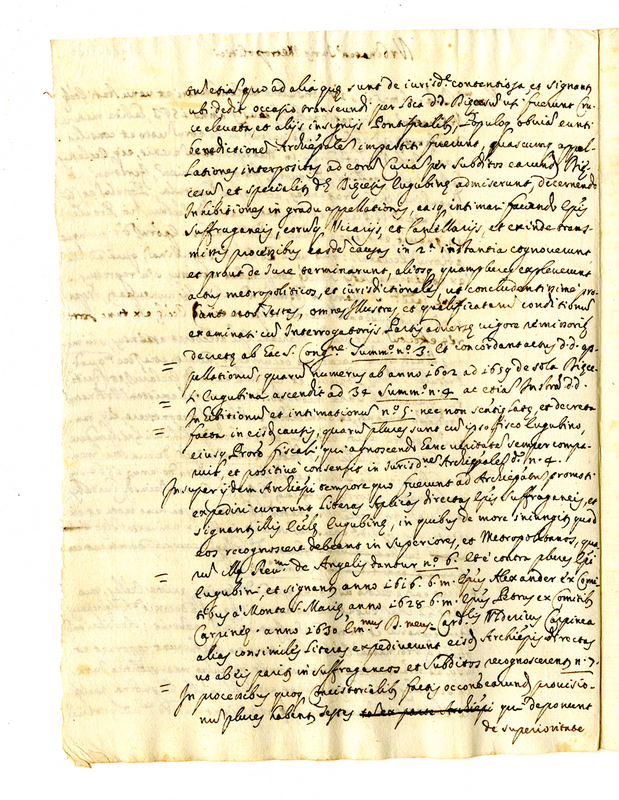 etiam quo ad alia quę sunt de iurisd.e contentiosa et signant.
ubi dedit occasio transeundi per loca d.d. Diecesum uti fuerunt Cru
ce elevata, et alijs insignijs Pontificalib. Populoq. obviam eunti
benedictiones Archiepales impartiti fuerunt, quascumq. appel
lationes interpositas ad eorum Curia per subditos earumd. Diȩ
cesum et specialit. d.ę Diȩcesis Eugubinę admiserunt, decernendo
Inhibitiones in gradu appellationis, easq. intimari faciendo Epis
suffraganeis, eorumq. Vicarijs, et Cancellarijs, et exinde trans
missis processibus easdem causas in 2.a instantia cognoverunt
et prout de Iure terminarunt, aliosq. quamplures expleverunt
actus metropoliticos, et iurisdictionales, ut concludentissime pro
bant testes, omnes Illustres, et qualificatarum conditionum
examinati cum Interrogatorijs Partis adversę vigore
decreti ab hac S. Cong.ne Summ.o n.o 3. Et concordant actus d.d. ap
= pellationum, quarum numerus ab anno 1602 ad 1659 de sola Diȩce
si Eugubina ascendit ad 34 Summ.o n. 4 ac etiam d.d.
= Inhibitionum et intimationum n.o 5. nec non sententię latę, et decreta
= facta in eisd. causis, quarum plures sunt cum ipso fisco Eugubino,
eiusq. Prore fiscali qui agnoscendo hanc veritatem semper compa
ruit, et positive consensit in Iurisd.nem Archiepalem d.o n. 4.
Insuper ijdem Archiepi tempore quo fuerunt ad Archiepatum promoti
expediri curarunt Literas Aplicas directas Epis Suffraganeis, et
signanter Eugubinę, in quibus de more iniungitur quod
eos recognoscere debeant in superiores, et Metropolitanos, qua
rum Rev.mi de Angelis dantur n.o 6. Et è contra plures Epi
= Eugubini, et signant. anno 1616. b.m. Epus Alexander ex Comi
tibus à Monte S. Marię, anno 1628 b.m. Epus Petrus ex Comitib.
Carpineȩ. anno 1630 Em.mus D. meus Card.lis Vldericus Carpinea
alias consimiles literas expediverunt eisd. Archiepis directas
= vo ab eis parit. in suffraganeos et subditos recognoscerent. n. 7.
= In processibus quoq. Concistorialib. factis occone earumd. provisio-
num plures habent. testes qui deponunt
de superioritate